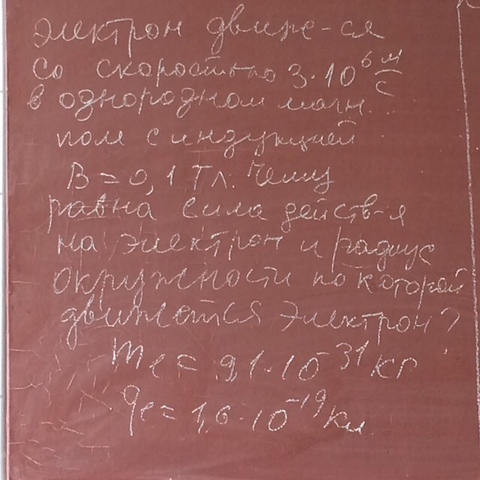 Электрон движе-ся
со скоростью 3·10⁶ м/с
в однородном магн.
поле с индукцией
B = 0,1 Тл. Чему
равна сила действ-я
на электрон и радиус
окружности по которой
движется электрон?
me = 9,1·10⁻³¹ кг
qe = 1,6·10⁻¹⁹ Кл